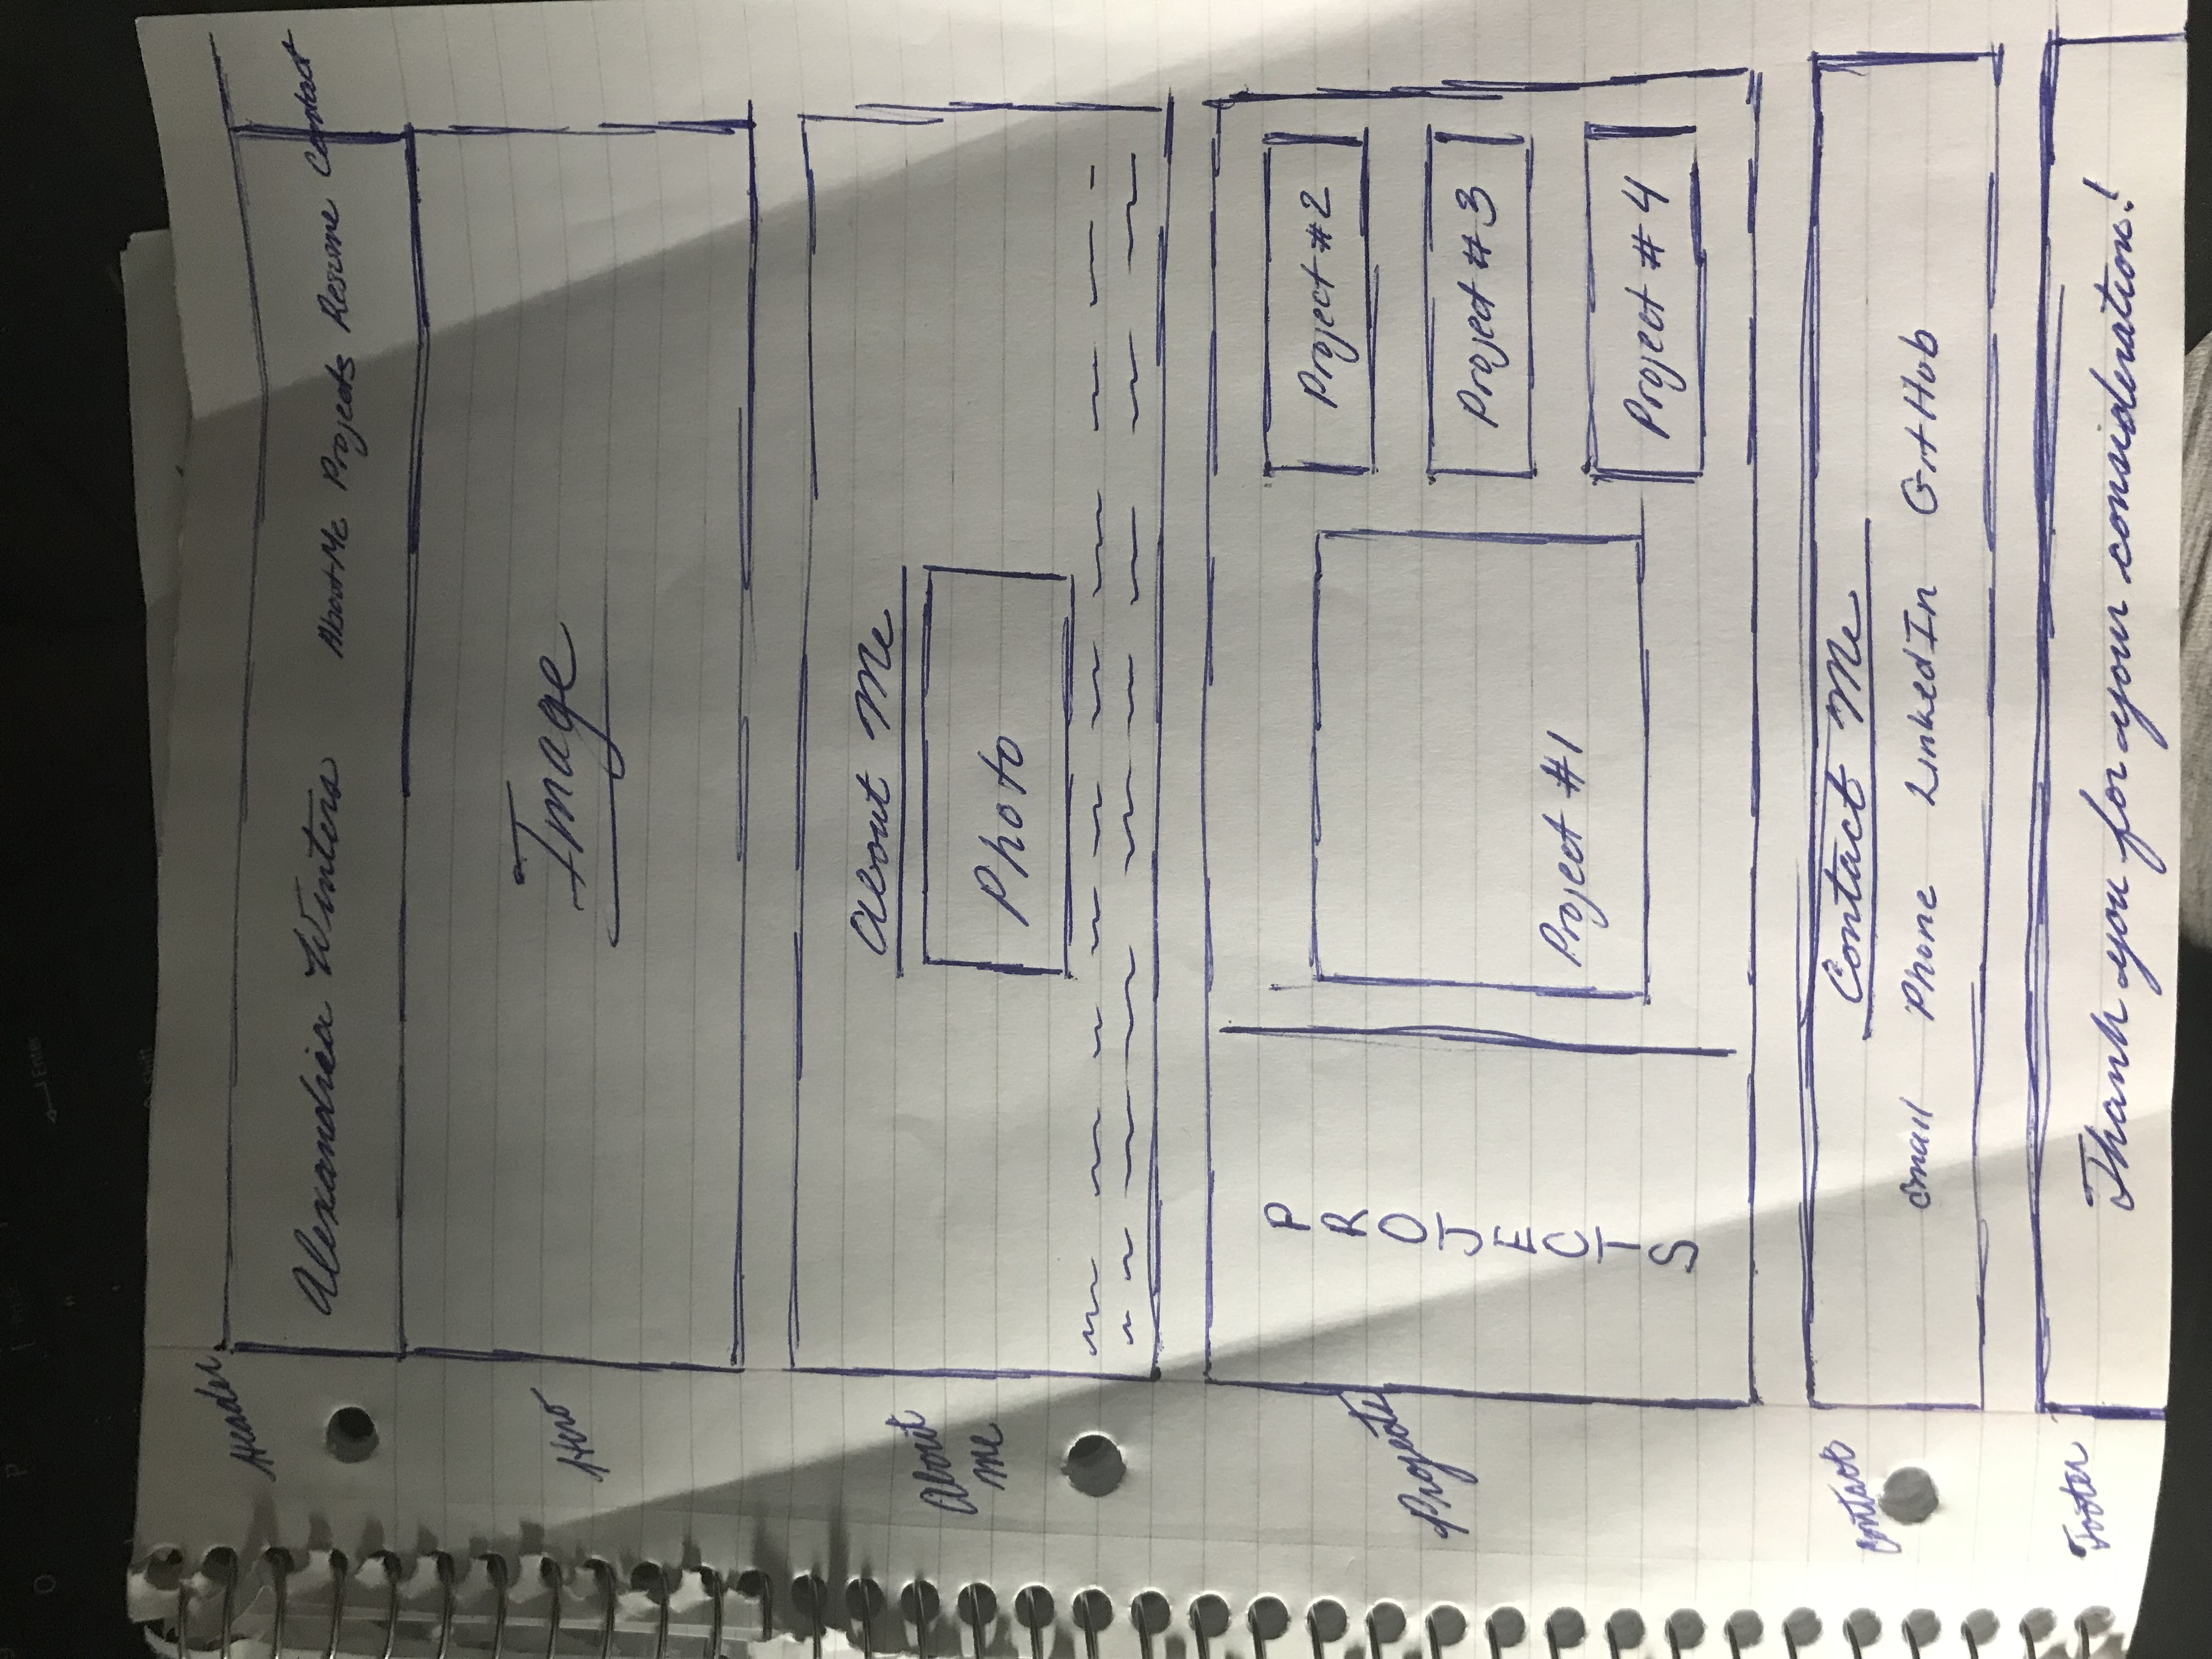 Enter
Shift
Header
Alexandria Winters About Me Projects Resume Contact
Hero
Image
About Me
About
me
Photo
P
R
O
J
E
C
T
S
Projects
Project #1
Project #2
Project #3
Project #4
Contact
Contact Me
Email Phone LinkedIn GitHub
Footer
Thank you for your consideration!